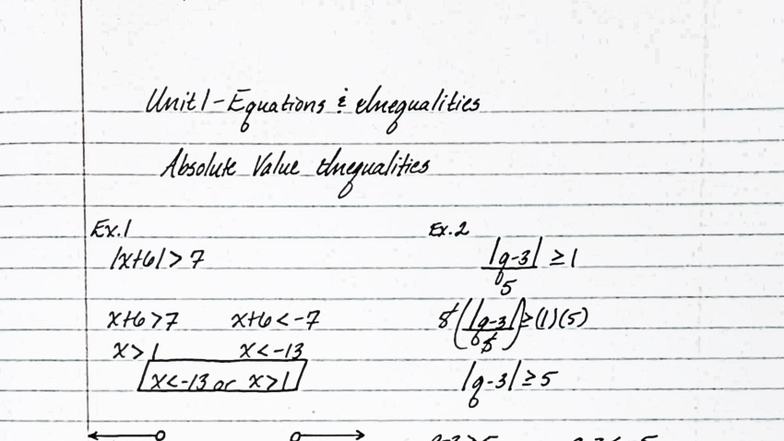 Unit 1 - Equations & Inequalities
Absolute Value Inequalities
Ex. 1
|x+6| > 7
x+6 > 7 x+6 < -7
x > 1 x < -13
x < -13 or x > 1
Ex. 2
|q-3| / 5 ≥ 1
5(|q-3| / 5) ≥ (1)(5)
|q-3| ≥ 5